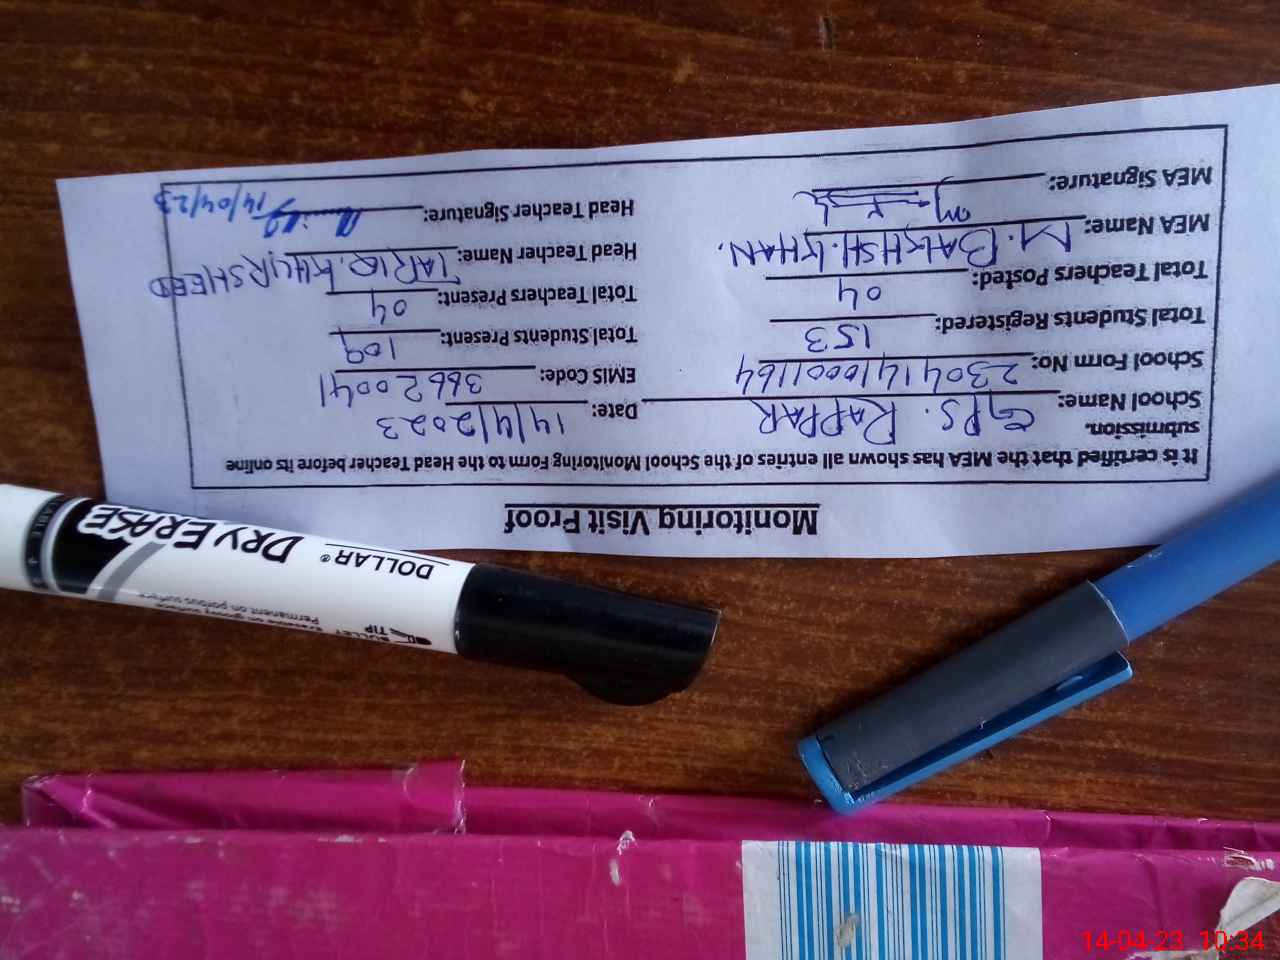 Monitoring Visit Proof
It is certified that the MEA has shown all entries of the School Monitoring Form to the Head Teacher before its online
submission.
School Name: GPS. RAPPAR Date: 14/4/2023
School Form No: 23041410001164 EMIS Code: 36620041
Total Students Registered: 153 Total Students Present: 109
Total Teachers Posted: 04 Total Teachers Present: 04
MEA Name: M. BAKHSH. KHAN. Head Teacher Name: TARIQ. KHURSHEED
MEA Signature: Head Teacher Signature: 14/04/23
DOLLAR®
DRY ERASE
BULLET TIP
Erasable on glossy surface
Permanent on porous surface
14-04-23 10:34